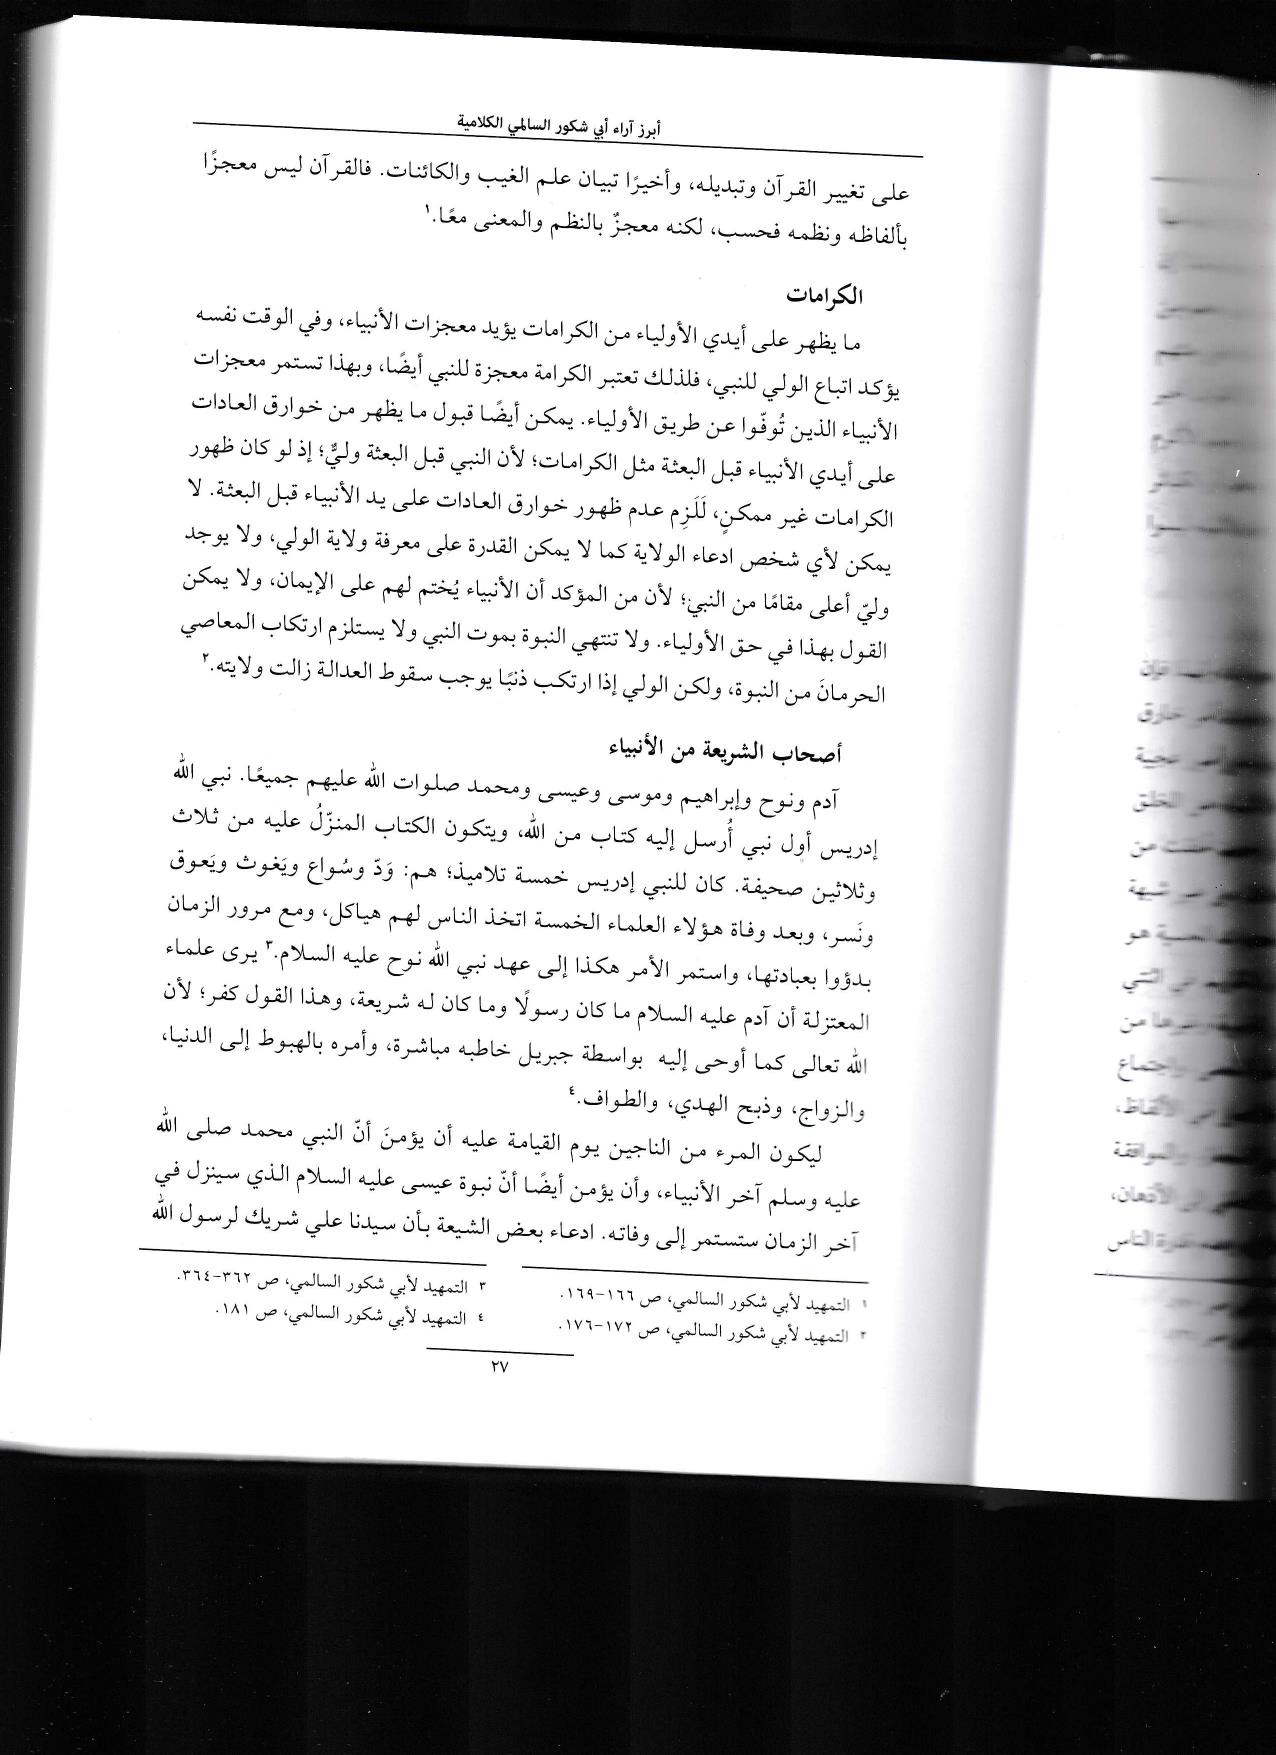 أبرز آراء أبي شكور السالمي الكلامية
على تغيير القرآن وتبديله، وأخيرًا تبيان علم الغيب والكائنات. فالقرآن ليس معجزًا
بألفاظه ونظمه فحسب، لكنه معجزٌ بالنظم والمعنى معًا.١
الكرامات
ما يظهر على أيدي الأولياء من الكرامات يؤيد معجزات الأنبياء، وفي الوقت نفسه
يؤكد اتباع الولي للنبي، فلذلك تعتبر الكرامة معجزة للنبي أيضًا، وبهذا تستمر معجزات
الأنبياء الذين تُوفّوا عن طريق الأولياء. يمكن أيضًا قبول ما يظهر من خوارق العادات
على أيدي الأنبياء قبل البعثة مثل الكرامات؛ لأن النبي قبل البعثة وليٌّ؛ إذ لو كان ظهور
الكرامات غير ممكنٍ، لَلَزِم عدم ظهور خوارق العادات على يد الأنبياء قبل البعثة. لا
يمكن لأي شخص ادعاء الولاية كما لا يمكن القدرة على معرفة ولاية الولي، ولا يوجد
وليّ أعلى مقامًا من النبي؛ لأن من المؤكد أن الأنبياء يُختم لهم على الإيمان، ولا يمكن
القول بهذا في حق الأولياء. ولا تنتهي النبوة بموت النبي ولا يستلزم ارتكاب المعاصي
الحرمانَ من النبوة، ولكن الولي إذا ارتكب ذنبًا يوجب سقوط العدالة زالت ولايته.٢
أصحاب الشريعة من الأنبياء
آدم ونوح وإبراهيم وموسى وعيسى ومحمد صلوات الله عليهم جميعًا. نبي الله
إدريس أول نبي أُرسل إليه كتاب من الله، ويتكون الكتاب المنزّلُ عليه من ثلاث
وثلاثين صحيفة. كان للنبي إدريس خمسة تلاميذ؛ هم: وَدّ وسُواع ويَغوث ويَعوق
ونَسر، وبعد وفاة هؤلاء العلماء الخمسة اتخذ الناس لهم هياكل، ومع مرور الزمان
بدؤوا بعبادتها، واستمر الأمر هكذا إلى عهد نبي الله نوح عليه السلام.٣ يرى علماء
المعتزلة أن آدم عليه السلام ما كان رسولًا وما كان له شريعة، وهذا القول كفر؛ لأن
الله تعالى كما أوحى إليه بواسطة جبريل خاطبه مباشرة، وأمره بالهبوط إلى الدنيا،
والزواج، وذبح الهدي، والطواف.٤
ليكون المرء من الناجين يوم القيامة عليه أن يؤمنَ أنّ النبي محمد صلى الله
عليه وسلم آخر الأنبياء، وأن يؤمن أيضًا أنّ نبوة عيسى عليه السلام الذي سينزل في
آخر الزمان ستستمر إلى وفاته. ادعاء بعض الشيعة بأن سيدنا علي شريك لرسول الله
١ التمهيد لأبي شكور السالمي، ص ١٦٦-١٦٩.
٢ التمهيد لأبي شكور السالمي، ص ١٧٢-١٧٦.
٣ التمهيد لأبي شكور السالمي، ص ٣٦٢-٣٦٤.
٤ التمهيد لأبي شكور السالمي، ص ١٨١.
٢٧